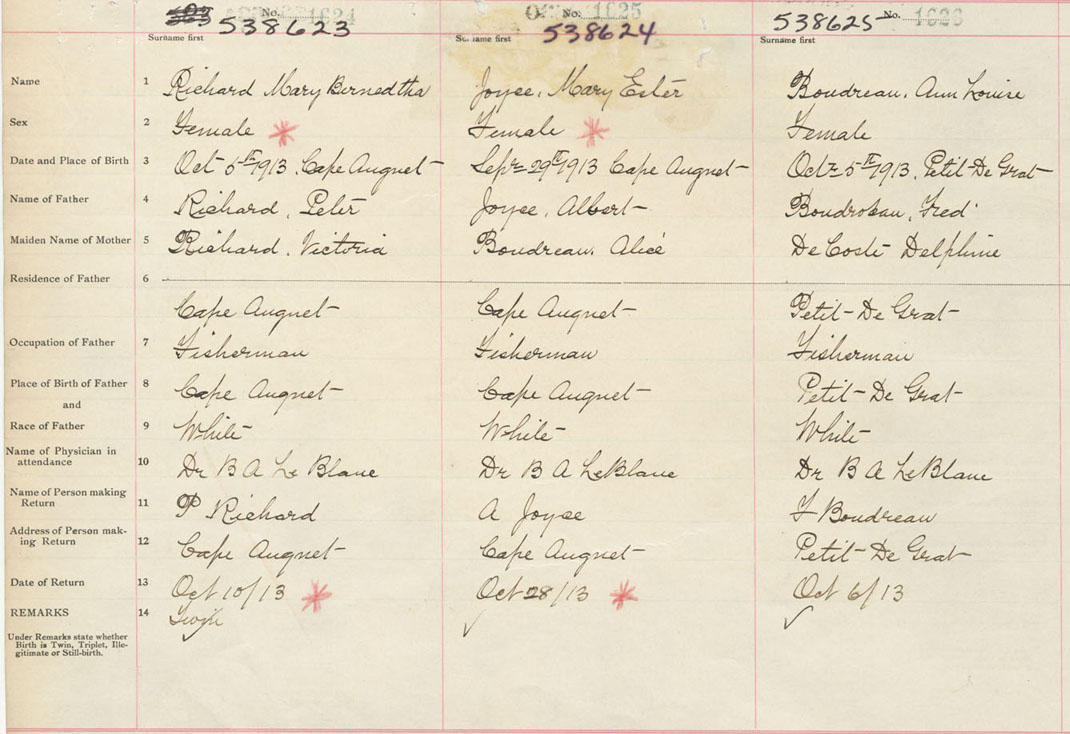 No. 1624 No. 1625 No. 1626
538623 538624 538625
Surname first Surname first Surname first
Name 1 Richard Mary Bernedtha Joyce, Mary Ester Boudreau, Ann Louise
Sex 2 Female Female Female
Date and Place of Birth 3 Oct 5th 1913, Cape Auguet Sept 29th 1913 Cape Auguet Oct 5th 1913, Petit-De Grat
Name of Father 4 Richard, Peter Joyce, Albert Fred
Maiden Name of Mother 5 Richard, Victoria Boudreau, Alice DeCoste Delphine
Residence of Father 6
Cape Auguet Cape Auguet Petit-De Grat
Occupation of Father 7 Fisherman Fisherman Fisherman
Place of Birth of Father 8 Cape Auguet Cape Auguet Petit-De Grat
and
Race of Father 9 White White White
Name of Physician in
attendance 10 Dr B A Le Blanc Dr B A LeBlanc Dr B A LeBlanc
Name of Person making
Return 11 P Richard A Joyce F Boudreau
Address of Person mak-
ing Return 12 Cape Auguet Cape Auguet Petit-De Grat
Date of Return 13 Oct 10/13 Oct 28/13 Oct 6/13
REMARKS 14
Under Remarks state whether
Birth is Twin, Triplet, Ille-
gitimate or Still-birth.